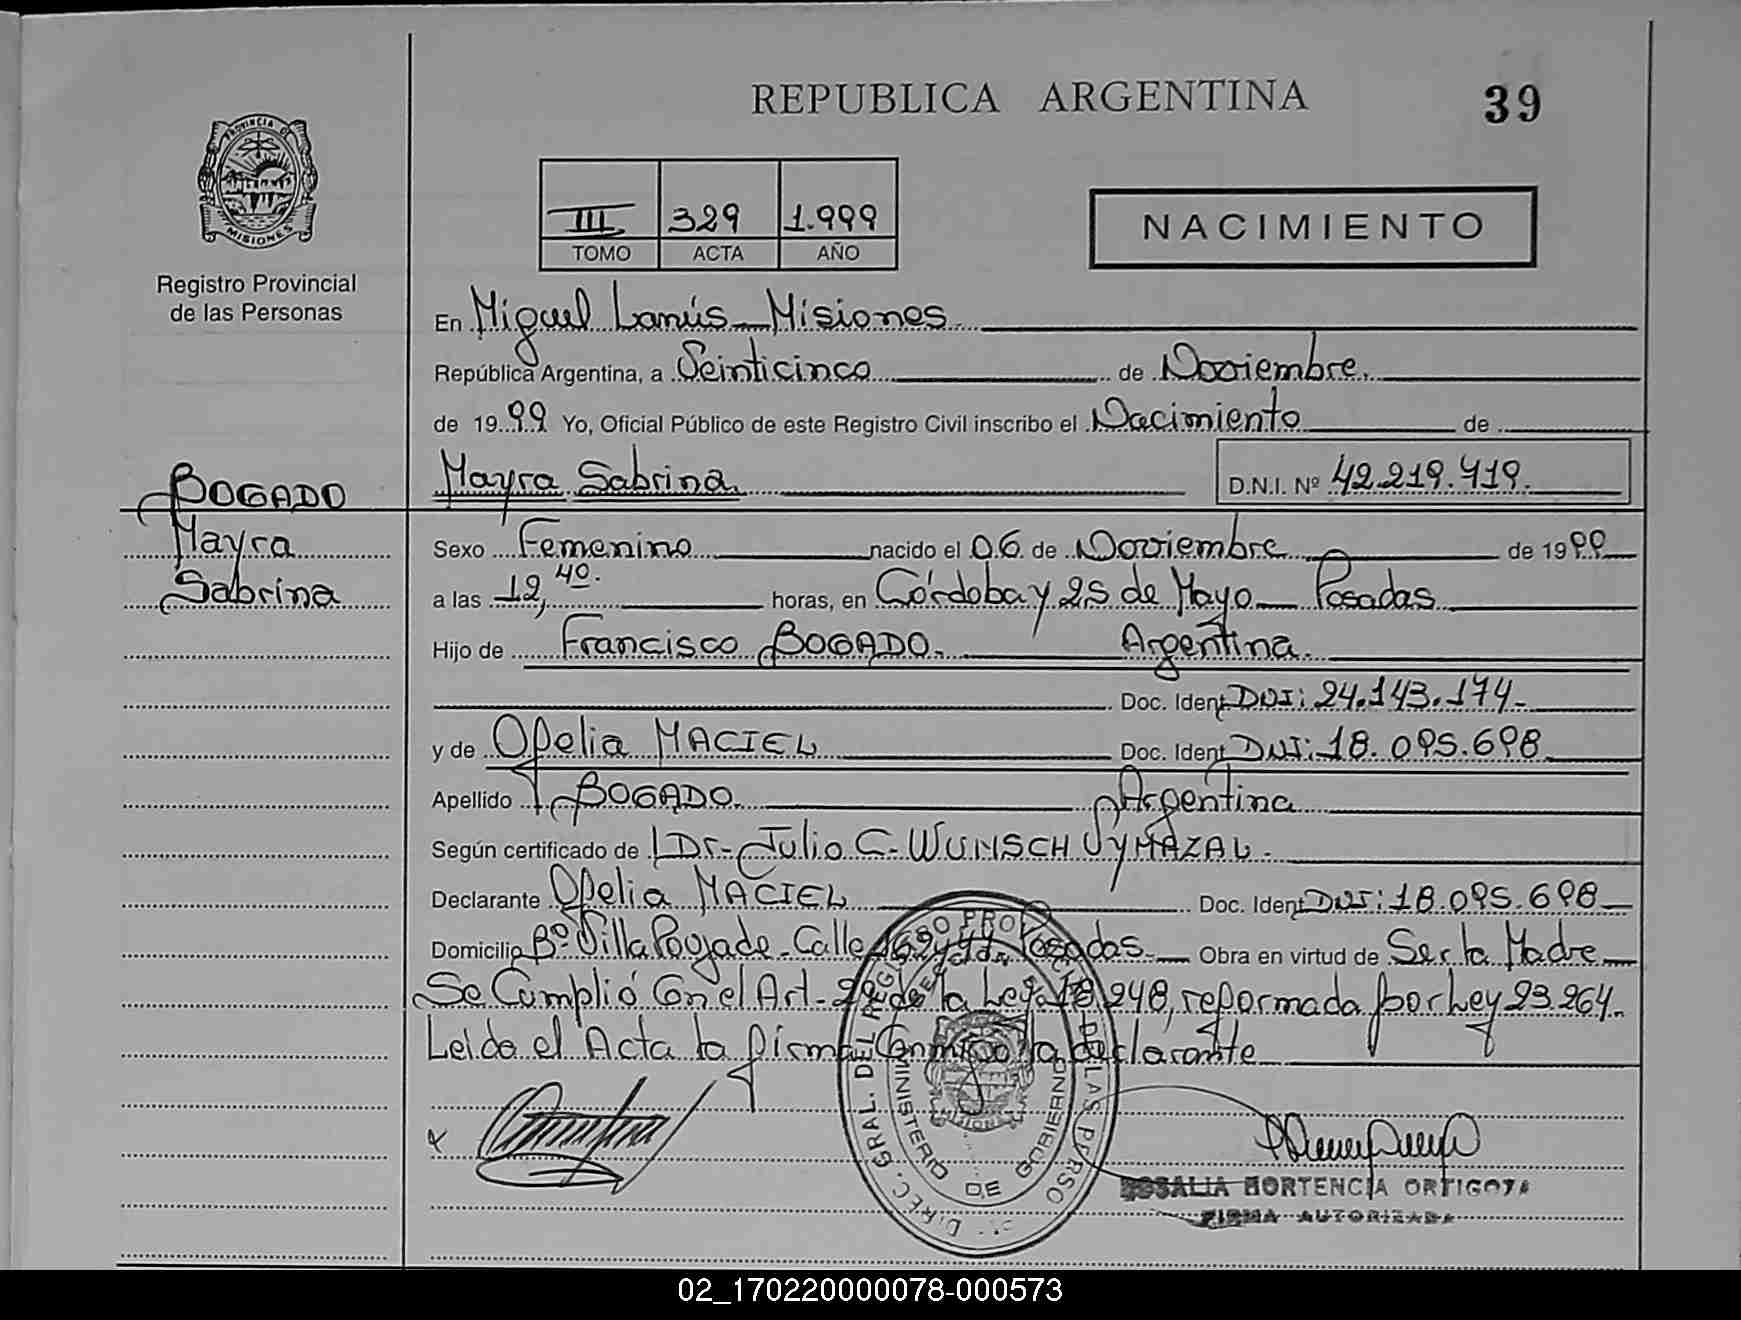 REPUBLICA ARGENTINA
39
PROVINCIA DE
MISIONES
Registro Provincial
de las Personas
III 329 1.999
TOMO ACTA AÑO
NACIMIENTO
En Miguel Lanús - Misiones
República Argentina, a Veinticinco de Noviembre.
de 1999 Yo, Oficial Público de este Registro Civil inscribo el Nacimiento de
Mayra Sabrina. D.N.I. Nº 42.219.419.
BOGADO
Mayra
Sabrina
Sexo Femenino nacido el 06 de Noviembre de 1999
a las 12,40. horas, en Córdoba y 25 de Mayo - Posadas
Hijo de Francisco BOGADO. Argentina.
Doc. Ident DNI: 24.143.174.-
y de Ofelia MACIEL Doc. Ident DNI: 18.095.698
Apellido BOGADO Argentina
Según certificado de Dr. Julio C. WUNSCH VYMAZAL.
Declarante Ofelia MACIEL Doc. Ident DNI: 18.095.698
Domicilio Bº Villa Poujade - Calle Posadas. Obra en virtud de Ser la Madre
Se Cumplió Con el Art. de la Ley 18.248, reformada por Ley 23.264.
Leida el Acta la firma Conmigo la declarante
DIREC. GRAL. DEL REGISTRO PROVINCIAL DE LAS PERSO
MINISTERIO DE GOBIERNO
MISIONES
ROSALIA HORTENCIA ORTIGOZA
FIRMA AUTORIZADA
02_170220000078-000573